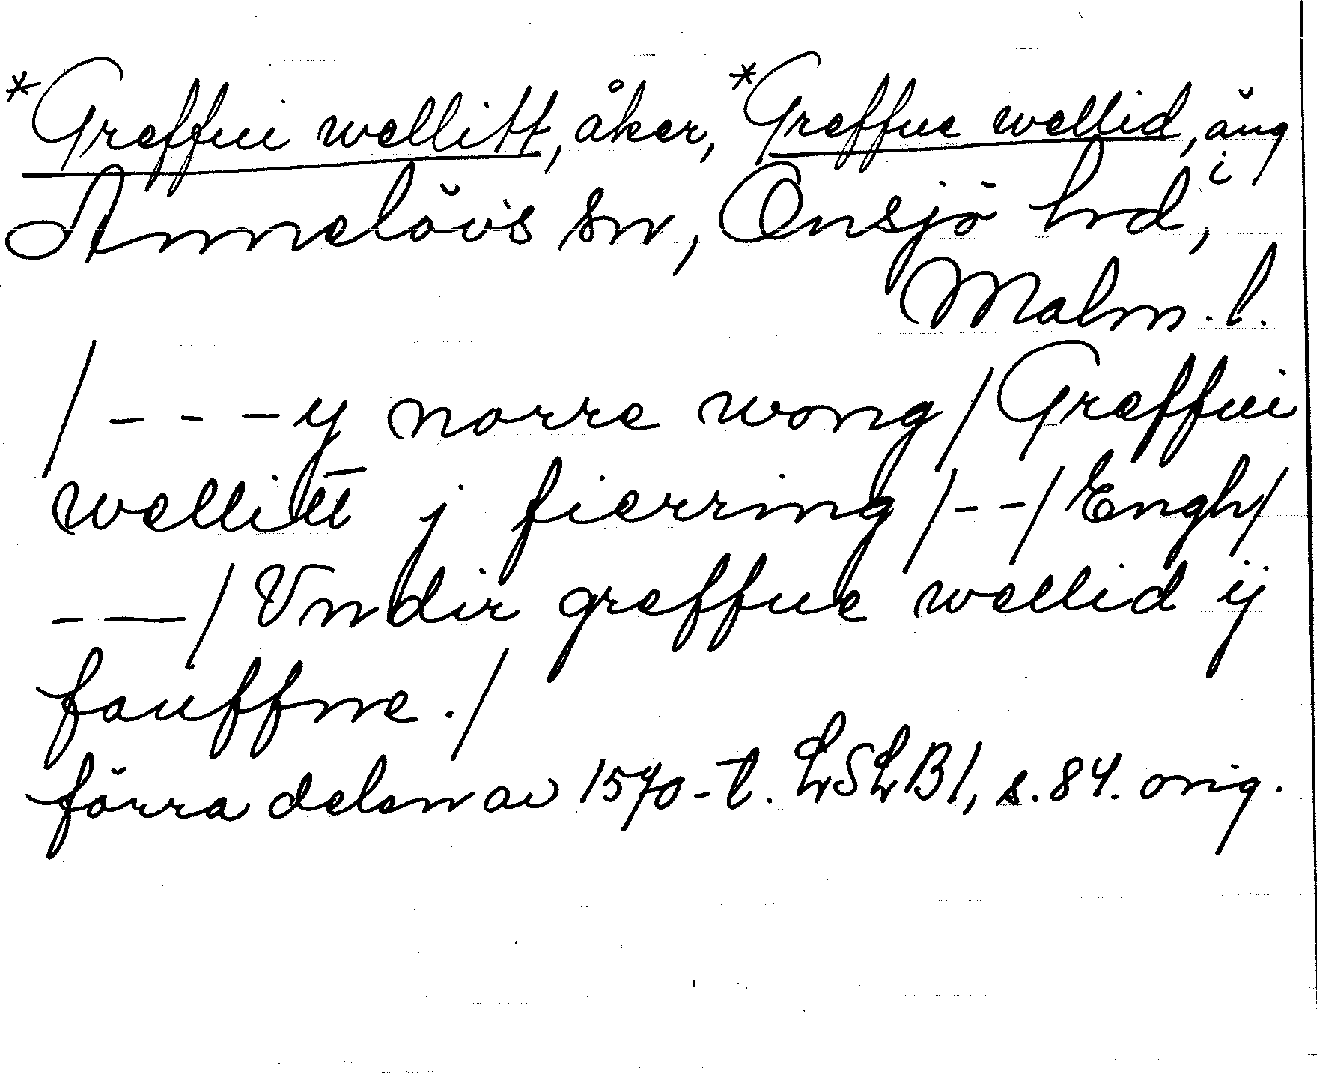 *Greffui wellitt, åker, *Greffue wellid, äng i
Annelövs sn, Onsjö hrd,
Malm. l.
/ - - - y norre wong / Greffui
wellitt j fierring / - - / Engh /
- — / Vndir greffue wellid ij
fauffne . /
förra delen av 1570-t. LSLB1, s. 84. orig.